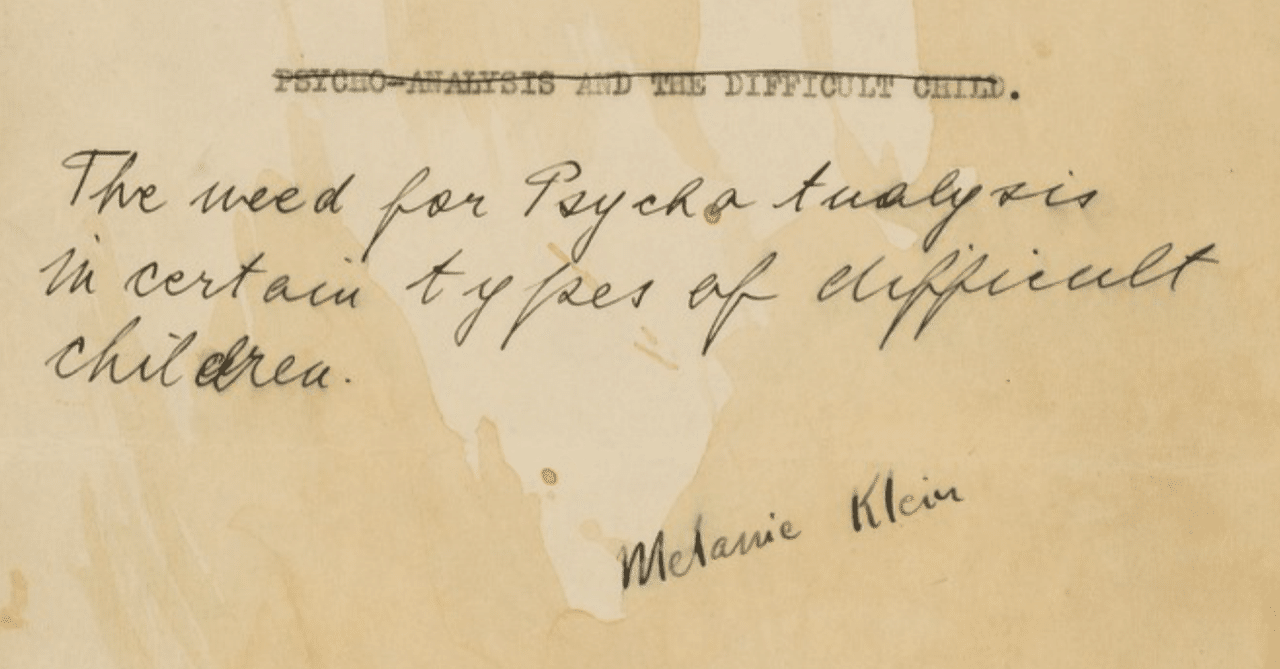 PSYCHO-ANALYSIS AND THE DIFFICULT CHILD.
The need for Psycho Analysis
in certain types of difficult
children.
Melanie Klein